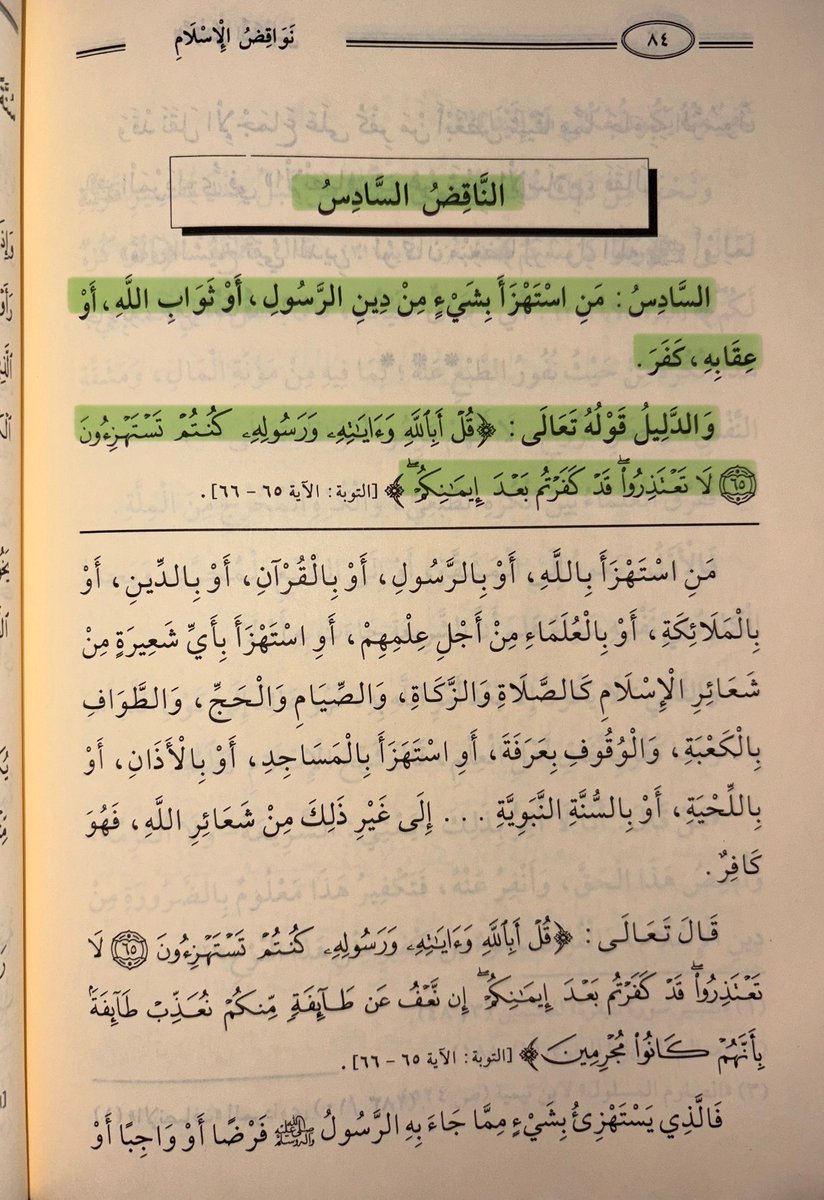 ٨٤ نَوَاقِضُ الْإِسْلَامِ
النَّاقِضُ السَّادِسُ
السَّادِسُ: مَنِ اسْتَهْزَأَ بِشَيْءٍ مِنْ دِينِ الرَّسُولِ، أَوْ ثَوَابِ اللَّهِ، أَوْ
عِقَابِهِ، كَفَرَ.
وَالدَّلِيلُ قَوْلُهُ تَعَالَى: ﴿قُلۡ أَبِٱللَّهِ وَءَايَٰتِهِۦ وَرَسُولِهِۦ كُنتُمۡ تَسۡتَهۡزِءُونَ
٦٥ لَا تَعۡتَذِرُواْۖ قَدۡ كَفَرۡتُم بَعۡدَ إِيمَٰنِكُمۡۖ﴾ [التوبة: الآية ٦٥ - ٦٦].
مَنِ اسْتَهْزَأَ بِاللَّهِ، أَوْ بِالرَّسُولِ، أَوْ بِالْقُرْآنِ، أَوْ بِالدِّينِ، أَوْ
بِالْمَلَائِكَةِ، أَوْ بِالْعُلَمَاءِ مِنْ أَجْلِ عِلْمِهِمْ، أَوِ اسْتَهْزَأَ بِأَيِّ شَعِيرَةٍ مِنْ
شَعَائِرِ الْإِسْلَامِ كَالصَّلَاةِ وَالزَّكَاةِ، وَالصِّيَامِ وَالْحَجِّ، وَالطَّوَافِ
بِالْكَعْبَةِ، وَالْوُقُوفِ بِعَرَفَةَ، أَوِ اسْتَهَزَأَ بِالْمَسَاجِدِ، أَوْ بِالْأَذَانِ، أَوْ
بِاللِّحْيَةِ، أَوْ بِالسُّنَّةِ النَّبَوِيَّةِ ... إِلَى غَيْرِ ذَلِكَ مِنْ شَعَائِرِ اللَّهِ، فَهُوَ
كَافِرٌ.
قَالَ تَعَالَى: ﴿قُلۡ أَبِٱللَّهِ وَءَايَٰتِهِۦ وَرَسُولِهِۦ كُنتُمۡ تَسۡتَهۡزِءُونَ ٦٥ لَا
تَعۡتَذِرُواْۖ قَدۡ كَفَرۡتُم بَعۡدَ إِيمَٰنِكُمۡۖ إِن نَّعۡفُ عَن طَآئِفَةٖ مِّنكُمۡ نُعَذِّبۡ طَآئِفَةَۢ
بِأَنَّهُمۡ كَانُواْ مُجۡرِمِينَ﴾ [التوبة: الآية ٦٥ - ٦٦].
فَالَّذِي يَسْتَهْزِئُ بِشَيْءٍ مِمَّا جَاءَ بِهِ الرَّسُولُ ﷺ فَرْضًا أَوْ وَاجِبًا أَوْ